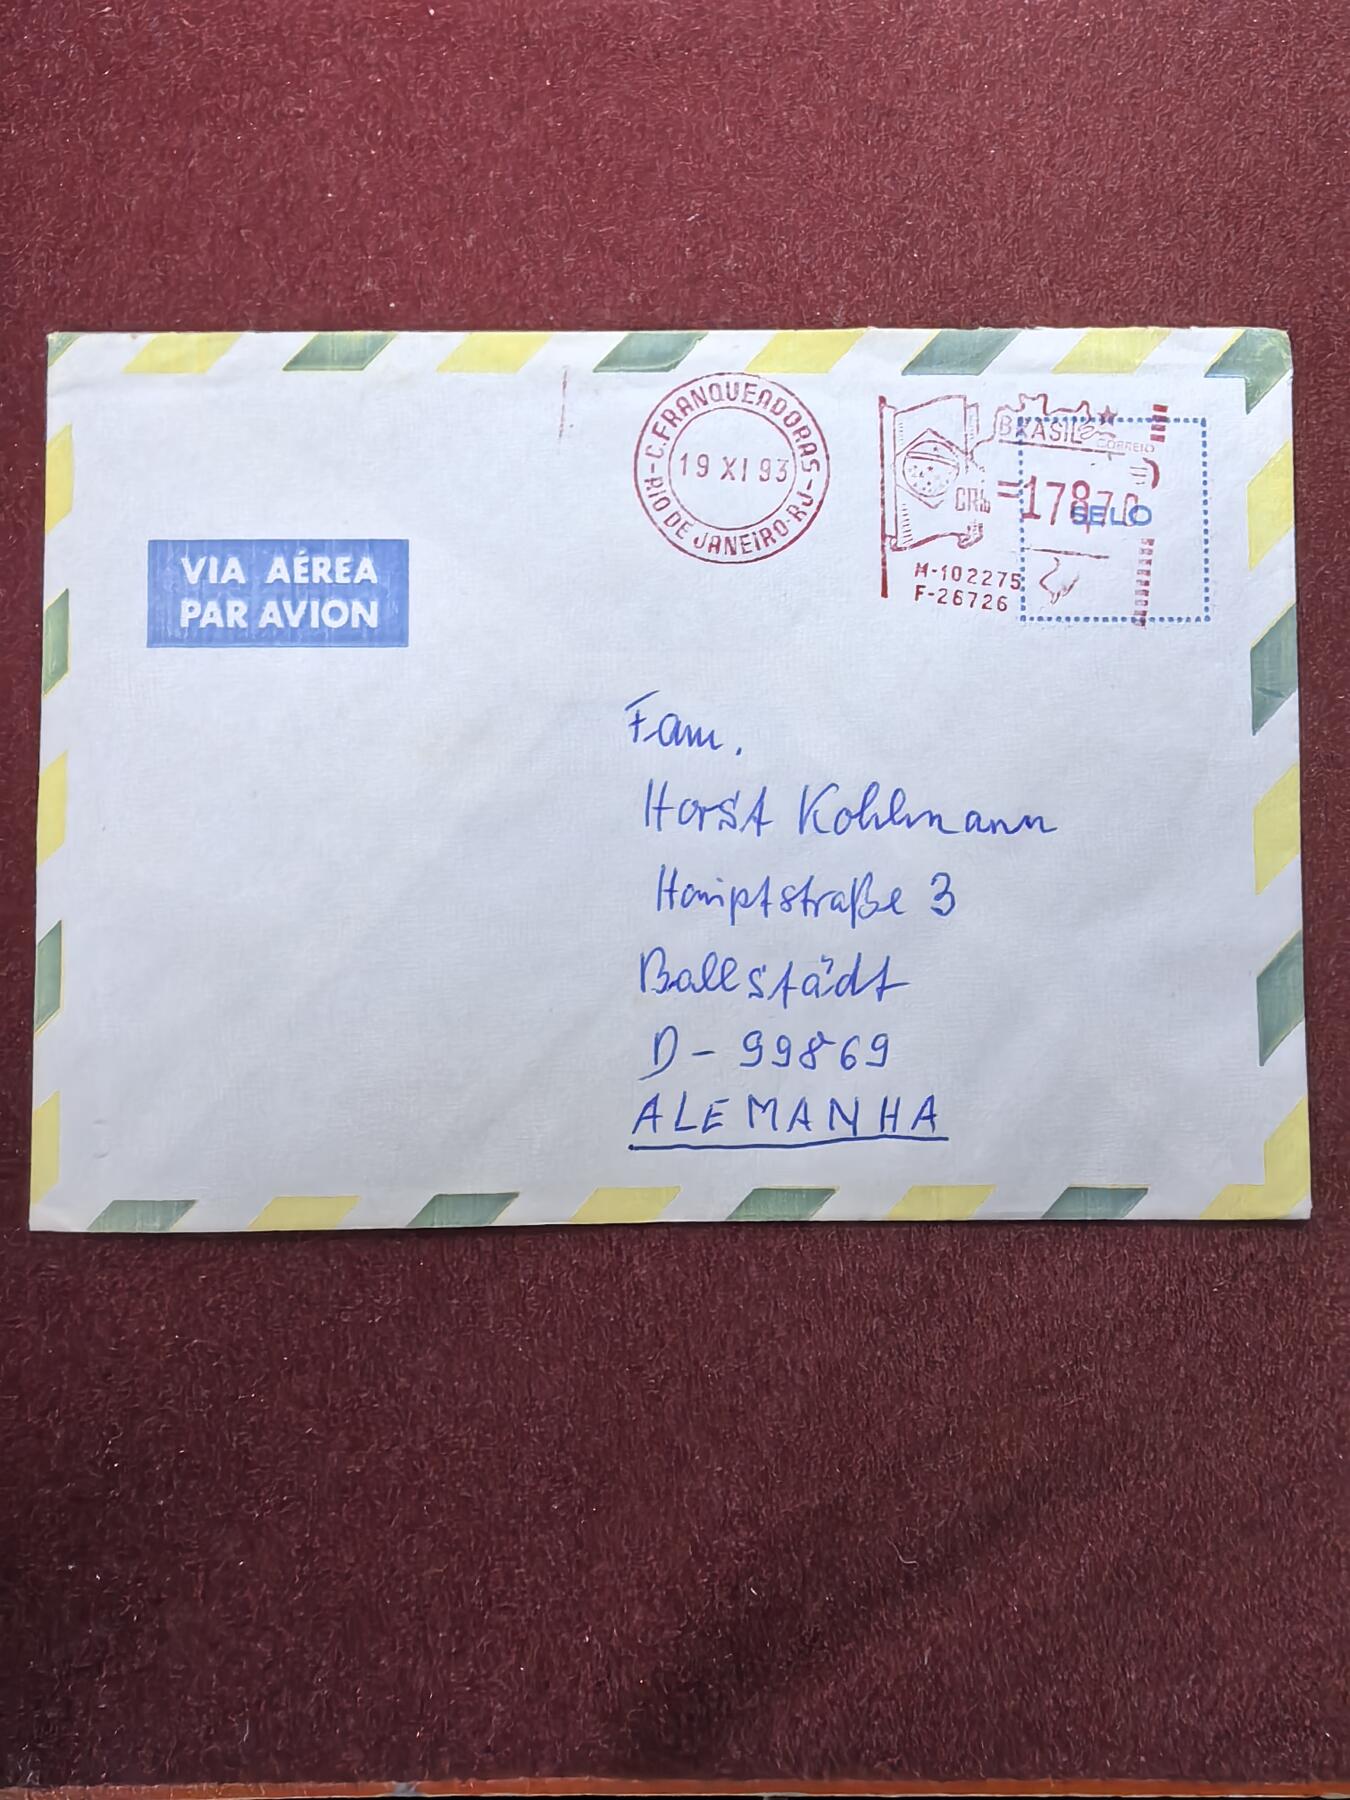 C.FRANQUEADORAS
19 XI 93
RIO DE JANEIRO-RJ
BRASIL
CORREIO
SELO
M-102275
F-26726
VIA AÉREA
PAR AVION
Fam.
Horst Kohlmann
Hauptstraße 3
Ballstädt
D-99869
ALEMANHA